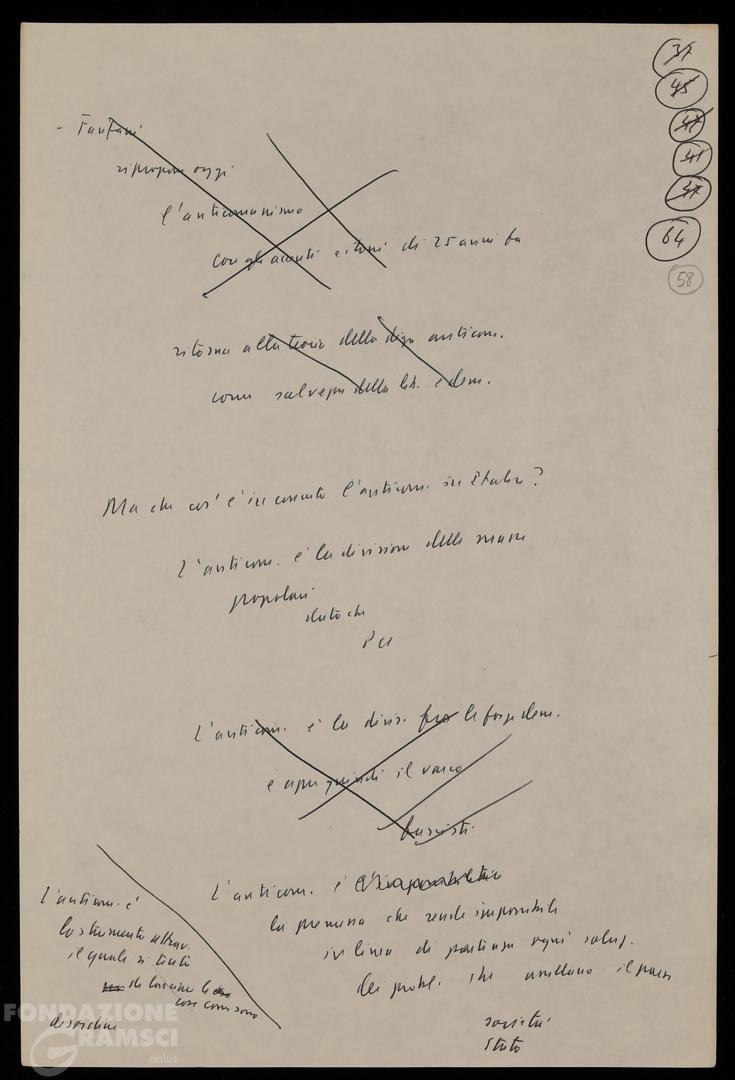 37
45
47
41
47
64
58
- Fanfani
ripropone oggi
l'anticomunismo
con gli accenti e i toni di 25 anni fa
ritorna alla teoria della diga anticom.
come della lib. e dem.
Ma che cos'è in concreto l'anticom. in Italia?
L'anticom. è la divisione delle masse
popolari
dato che
PCI
L'anticom. è la divis. fra le forze dem.
e apre quindi il varco
fascisti
L'anticom. è
la premessa che rende impossibile
in linea di partenza ogni soluz.
dei probl. che assillano il paese
società
Stato
L'anticom. è
lo strumento attrav.
il quale si tenta
di lasciare le
cose come sono
disordine
FONDAZIONE
GRAMSCI
onlus